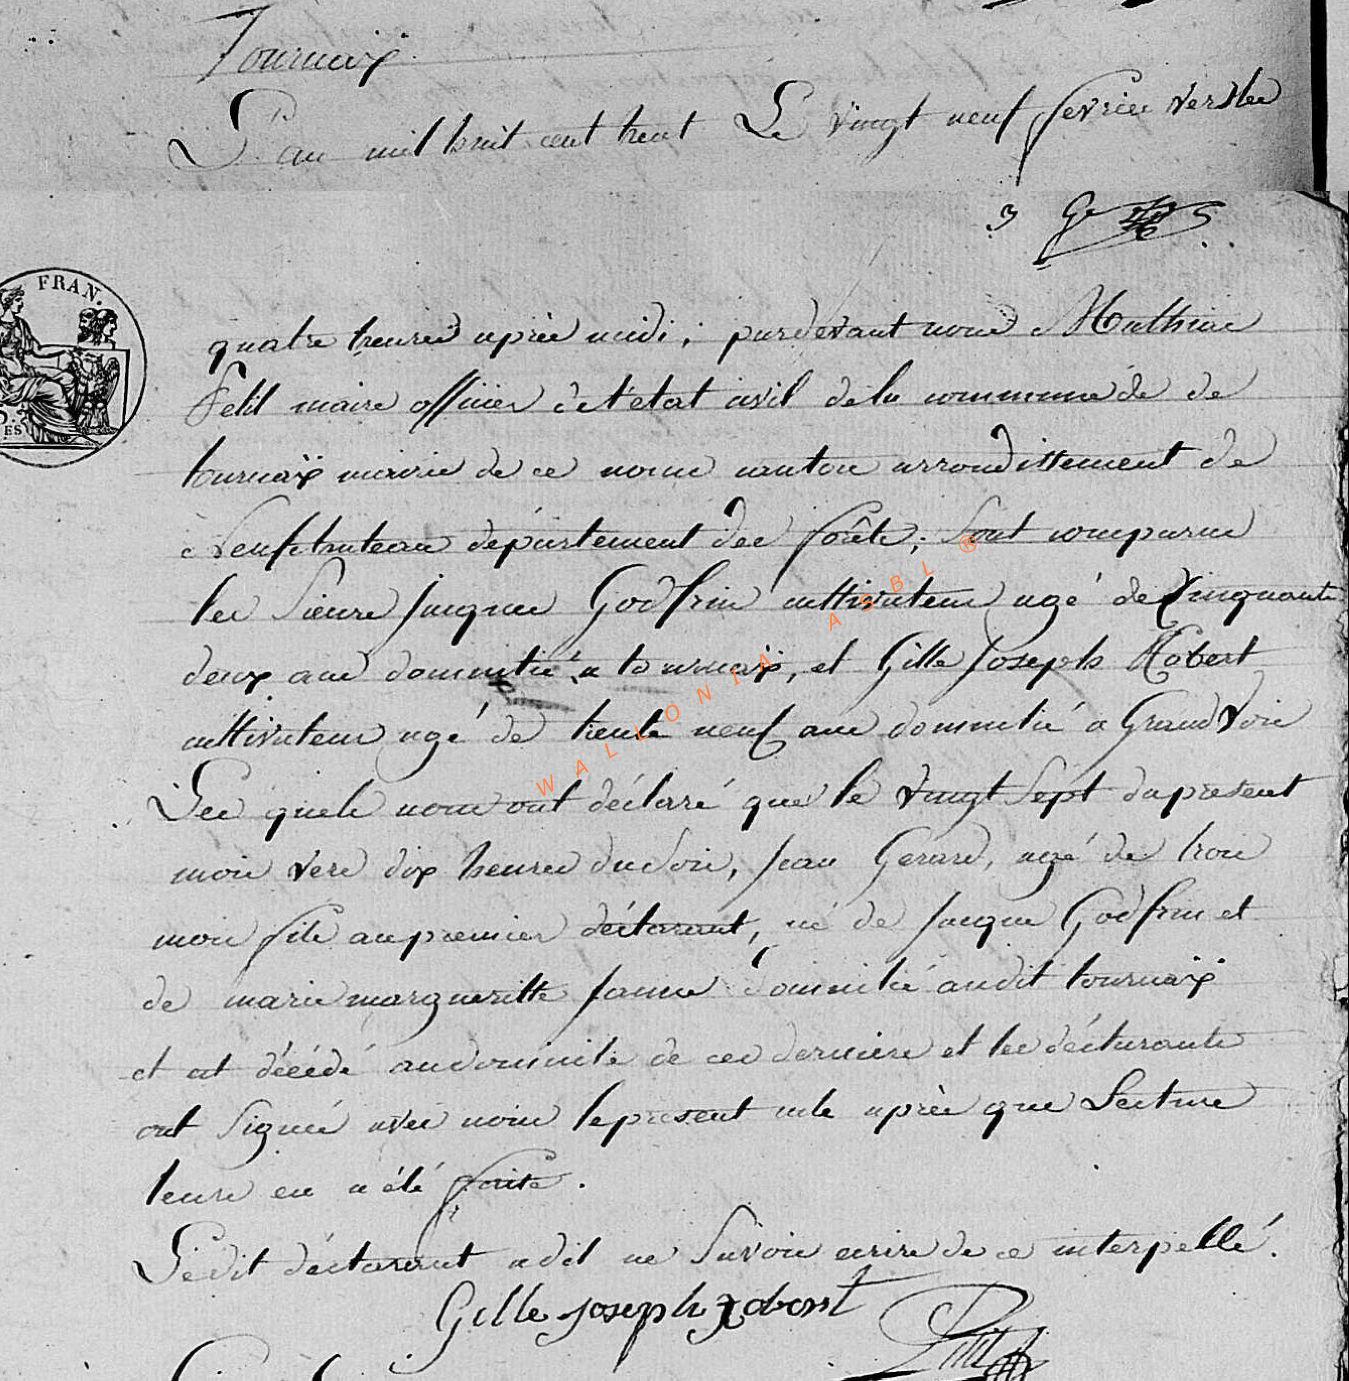 Tournaÿ
L'an mil huit cent trent Le vingt neuf fevrier vers les
3
FRAN.
quatre heures après midi, pardevant nous Mathieu
Petit maire officier de l'état civil de la commune de de
tournaÿ mairie de ce nom canton arrondissement de
Neufchateau département des forêts; Sont comparus
les Sieurs Jacques Godfrin cultivateur agé de Cinquante
deux ans domicilié a tournaÿ, et Gille Joseph Habert
cultivateur agé de trente neuf ans domicilié a GrandVoir
Les quels nous ont déclaré que le vingt Sept du present
mois vers dix heures du Soir, Jean Gerard, agé de trois
mois fils au premier déclarant, né de Jacque Godfrin et
de marie margueritte Jeanne domicilié audit tournaÿ
et est décédé au domicile de ces derniers et les déclarants
ont Signés avec nous le present acte après que Lecture
leurs en a été faite.
Ledit déclarant a dit ne Savoir ecrire de ce interpellé.
Gille joseph habert
Petit
WALLONIA ASBL ®